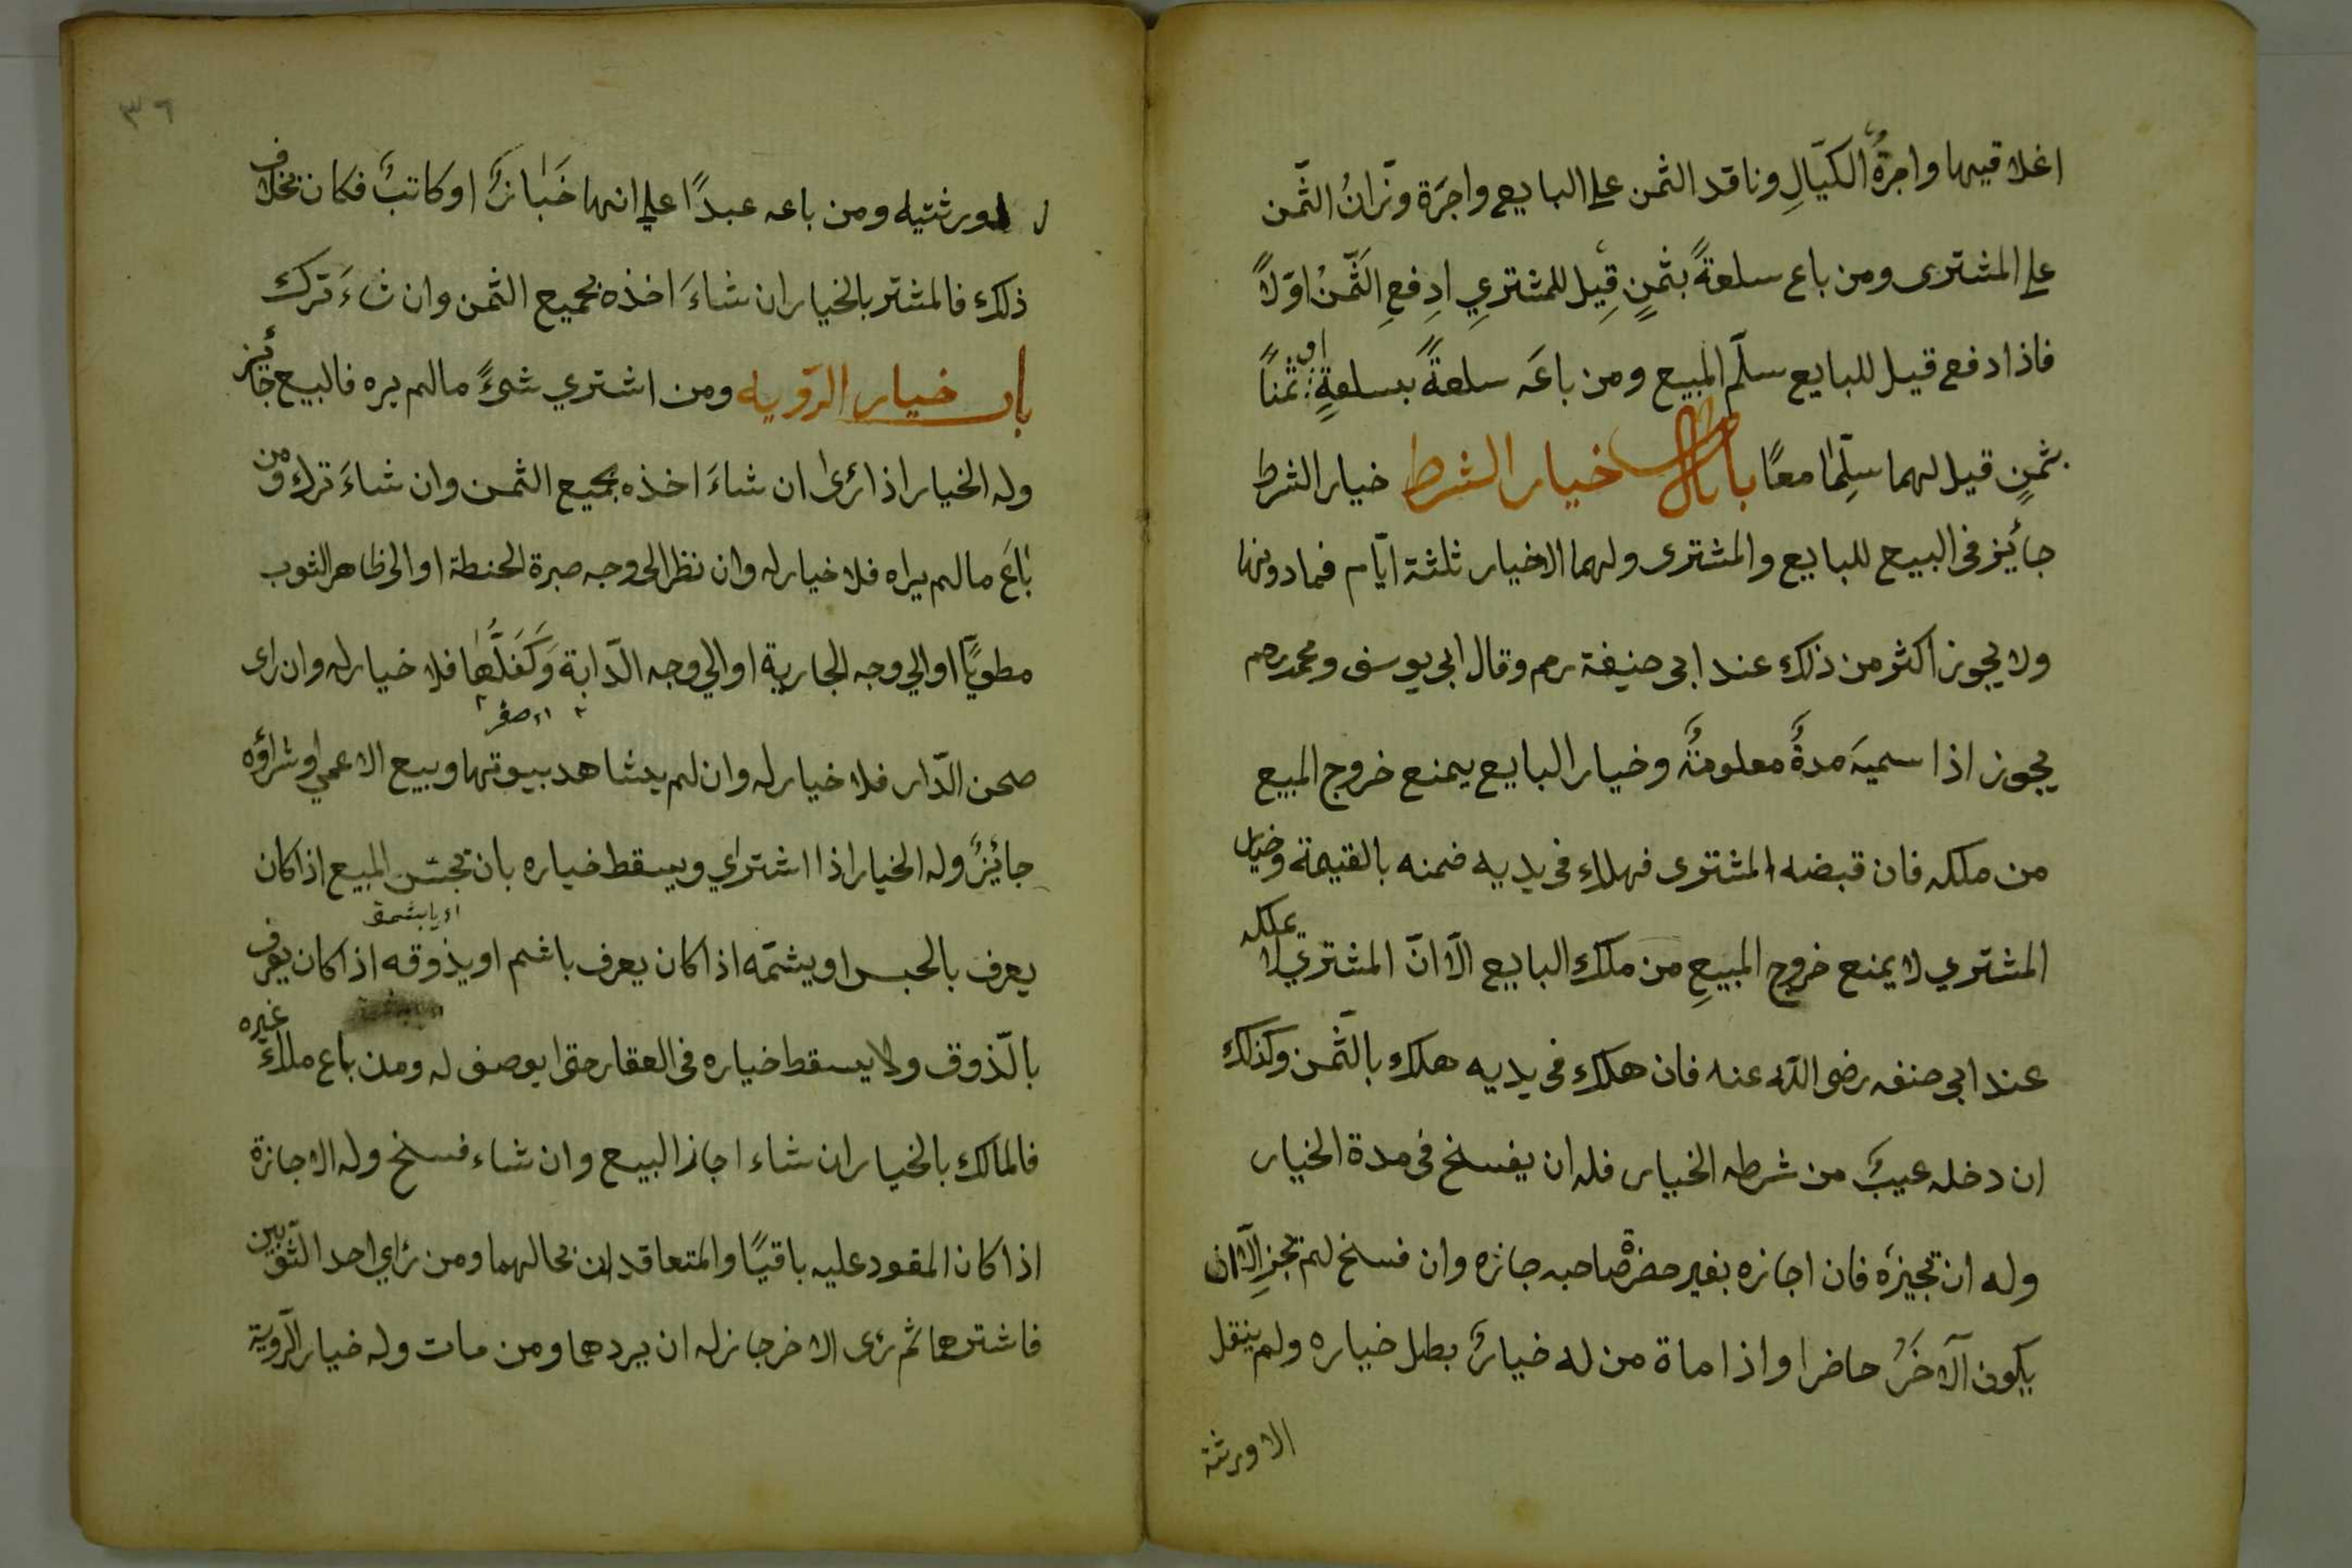 اغلاقيها واجرةُ الكيّالِ وناقد الثمن علي البايع واجرَة وزّانُ الثّمن
علي المشترى ومن باع سلعةً بثمنٍ قِيل للمشتري ادِفعِ الثّمنْ اوّلاً
فاذا دفع قيل للبايع سلّم المبيع ومن باعَه سلعةً بسلعةٍ او ثمناً
بثمنٍ قيل لهما سلِّما معًا باب خيار الشرط خيار الشرط
جائيز فى البيع للبايع والمشترى ولهما الاخيار ثلثة ايّام فمادونها
ولا يجوز اكثر من ذلك عند ابى حنيفة رحم وقال ابى يوسف ومحمد رحم
يجوز اذا سميَه مدةً معلومةً وخيار البايع يمنع خروج المبيع
من ملكه فان قبضه المشترى فهلاء فى يديه ضمنه بالقيمة وخيار
المشتري لا يمنع خروج المبيعِ من ملك البايع الّا انّ المشتري لا يملكه
عند ابى حنفه رضى اللّه عنه فان هلك فى يديه هلك بالثّمن وكذلك
ان دخله عيبٌ من شرطه الخيار فله ان يفسخ فى مدة الخيار
وله ان تجيزه فان اجازه بغير حضرة صاحبه جازه وان فسخ لم تجزِ الّا ان
يكون الآخَرُ حاضرا واذا ماة من له خيارٌ بطل خياره ولم ينقل
الا ورثة
٣٦
ورثتيه ومن باعه عبدًا علي انها خَبّازٌ او كاتبٌ فكان بخلاف
ذلك فالمشتر بالخيار ان شاءَ اخذه بجميع الثمن وان شاءَ ترك
باب خيار الرّويه ومن اشتري شىءً مالم يره فالبيع جائيز
وله الخيار اذا رئى ان شاءَ اخذه بجميع الثمن وان شاءَ ترك ومن
باعَ مالم يراه فلا خيار له وان نظر الى وجه صبرة الحنطة او الى ظاهر الثوب
مطويًّا او الي وجه الجارية او الي وجه الدّابة وَكَفَلُها فلا خيار له وان راى
صحن الدّار فلا خيار له وان لم يشاهد بيوتها وبيع الاعمي وشراؤه
جائيزٌ وله الخيار اذا اشتراي ويسقط خياره بان تجسّ المبيع اذا كان
يعرف بالحبس او يشمّه اذا كان يعرف باشم او يذوقه اذا كان يعرف
بالّذوق ولا يسقط خياره فى العقار حتى ايوصف له ومن باع ملاء غيره
فالمالك بالخيار ان شاء اجاز البيع وان شاء فسخ وله الاجازة
اذا كان المقود عليه باقيًا والمتعاقدان بحالهما ومن رئاي احد الثّوبين
فاشترهما ثم رئى الاخر جاز له ان يردهما ومن مات وله خيار الرّوية